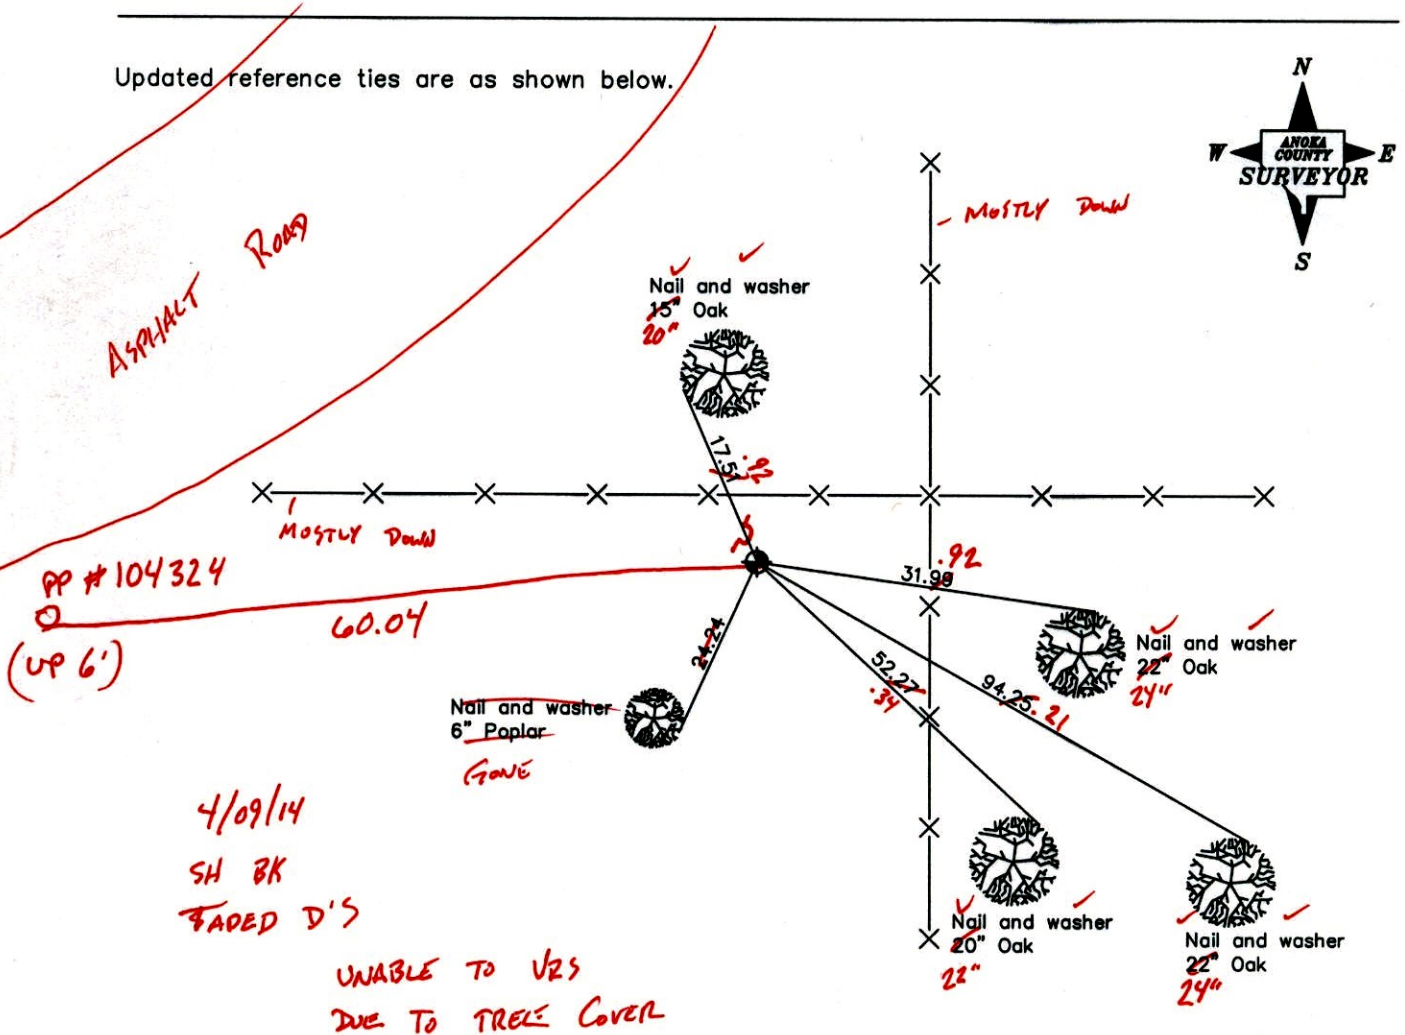 Updated reference ties are as shown below.
N
W
ANOKA
COUNTY
SURVEYOR
E
S
MOSTLY DOWN
ASPHALT ROAD
Nail and washer
15" Oak
20"
17.51
.92
MOSTLY DOWN
PP #104324
(UP 6')
60.04
31.99
.92
Nail and washer
22" Oak
24"
24.24
Nail and washer
6" Poplar
GONE
52.27
.34
94.25
.21
4/09/14
SH BK
TAPED D'S
UNABLE TO VRS
DUE TO TREE COVER
Nail and washer
20" Oak
22"
Nail and washer
22" Oak
24"